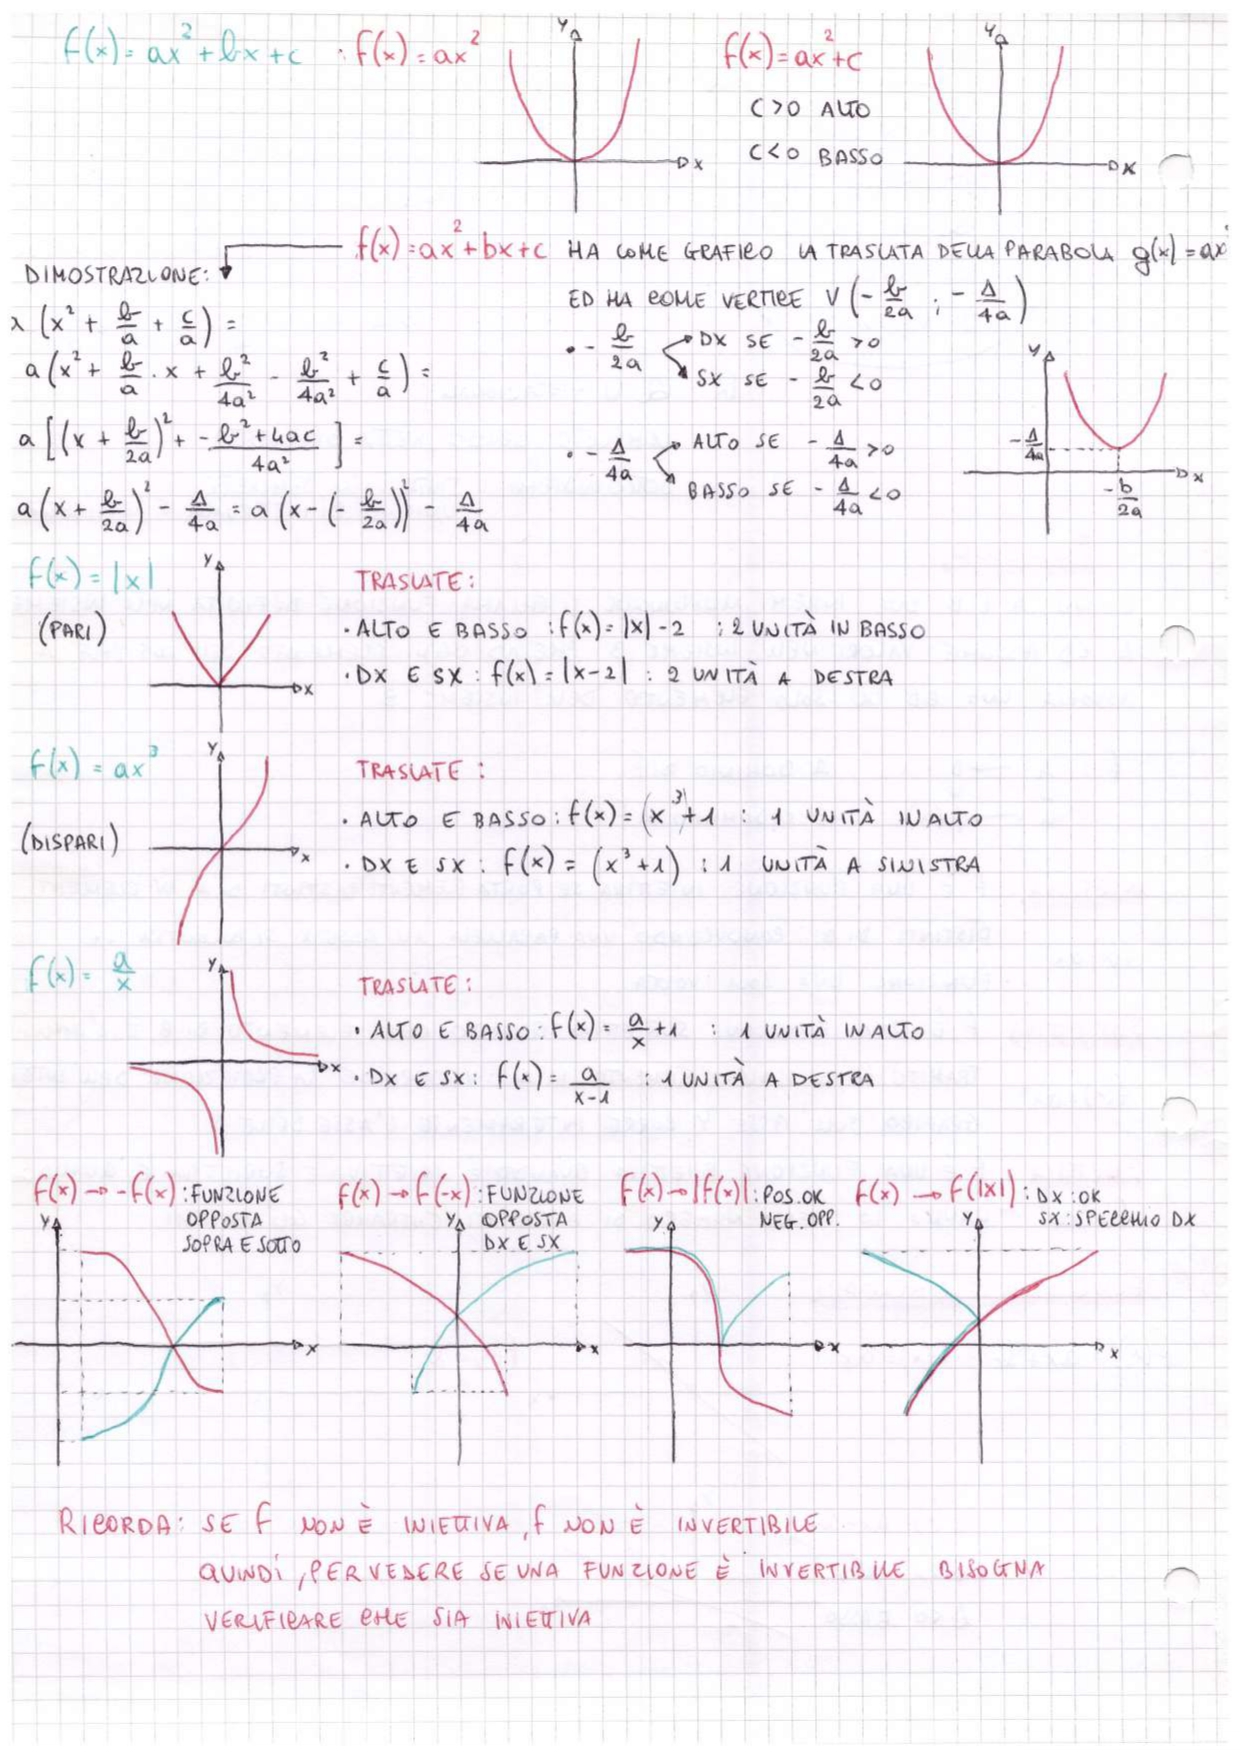 f(x) = ax² + bx + c : f(x) = ax² y x f(x) = ax² + c y x
C > 0 ALTO
C < 0 BASSO
f(x) = ax² + bx + c HA COME GRAFICO LA TRASLATA DELLA PARABOLA g(x) = ax²
ED HA COME VERTICE V (-b/2a ; -Δ/4a)
DIMOSTRAZIONE:
a (x² + b/a + c/a) =
a (x² + b/a . x + b²/4a² - b²/4a² + c/a) =
a [(x + b/2a)² + -b² + 4ac/4a²] =
a (x + b/2a)² - Δ/4a = a (x - (-b/2a))² - Δ/4a
• - b/2a DX SE - b/2a > 0
SX SE - b/2a < 0
• - Δ/4a ALTO SE - Δ/4a > 0
BASSO SE - Δ/4a < 0
y -Δ/4a x -b/2a
f(x) = |x| y x
(PARI)
TRASLATE:
• ALTO E BASSO : f(x) = |x| - 2 : 2 UNITÀ IN BASSO
• DX E SX : f(x) = |x-2| : 2 UNITÀ A DESTRA
f(x) = ax³ y x
(DISPARI)
TRASLATE :
• ALTO E BASSO : f(x) = (x³) + 1 : 1 UNITÀ IN ALTO
• DX E SX : f(x) = (x³ + 1) : 1 UNITÀ A SINISTRA
f(x) = a/x y x
TRASLATE :
• ALTO E BASSO : f(x) = a/x + 1 : 1 UNITÀ IN ALTO
• DX E SX : f(x) = a/x-1 : 1 UNITÀ A DESTRA
f(x) → -f(x) : FUNZIONE
OPPOSTA
SOPRA E SOTTO
y x
f(x) → f(-x) : FUNZIONE
OPPOSTA
DX E SX
y x
f(x) → |f(x)| : POS. OK
NEG. OPP.
y x
f(x) → f(|x|) : DX : OK
SX : SPECCHIO DX
y x
RICORDA : SE f NON È INIETTIVA, f NON È INVERTIBILE
QUINDI, PER VEDERE SE UNA FUNZIONE È INVERTIBILE BISOGNA
VERIFICARE CHE SIA INIETTIVA